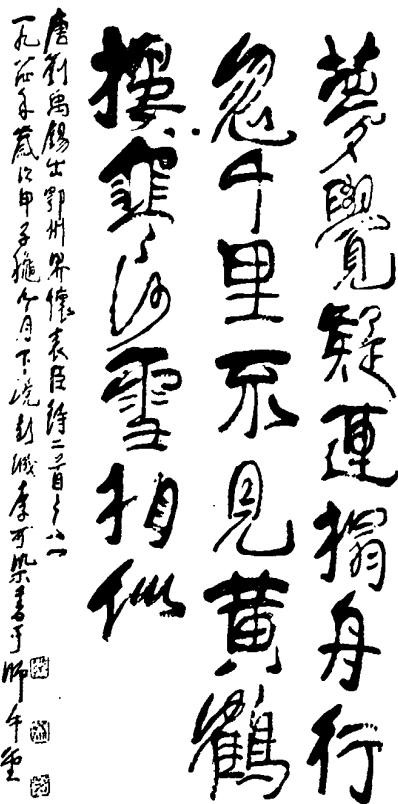 夢覺疑連榻舟行
忽千里不見黃鶴
樓寒沙雪相似
唐劉禹錫出鄂州界懷表臣詩二首之一
一九八四年歲次甲子穐月下浣彭城李可染書于師牛堂